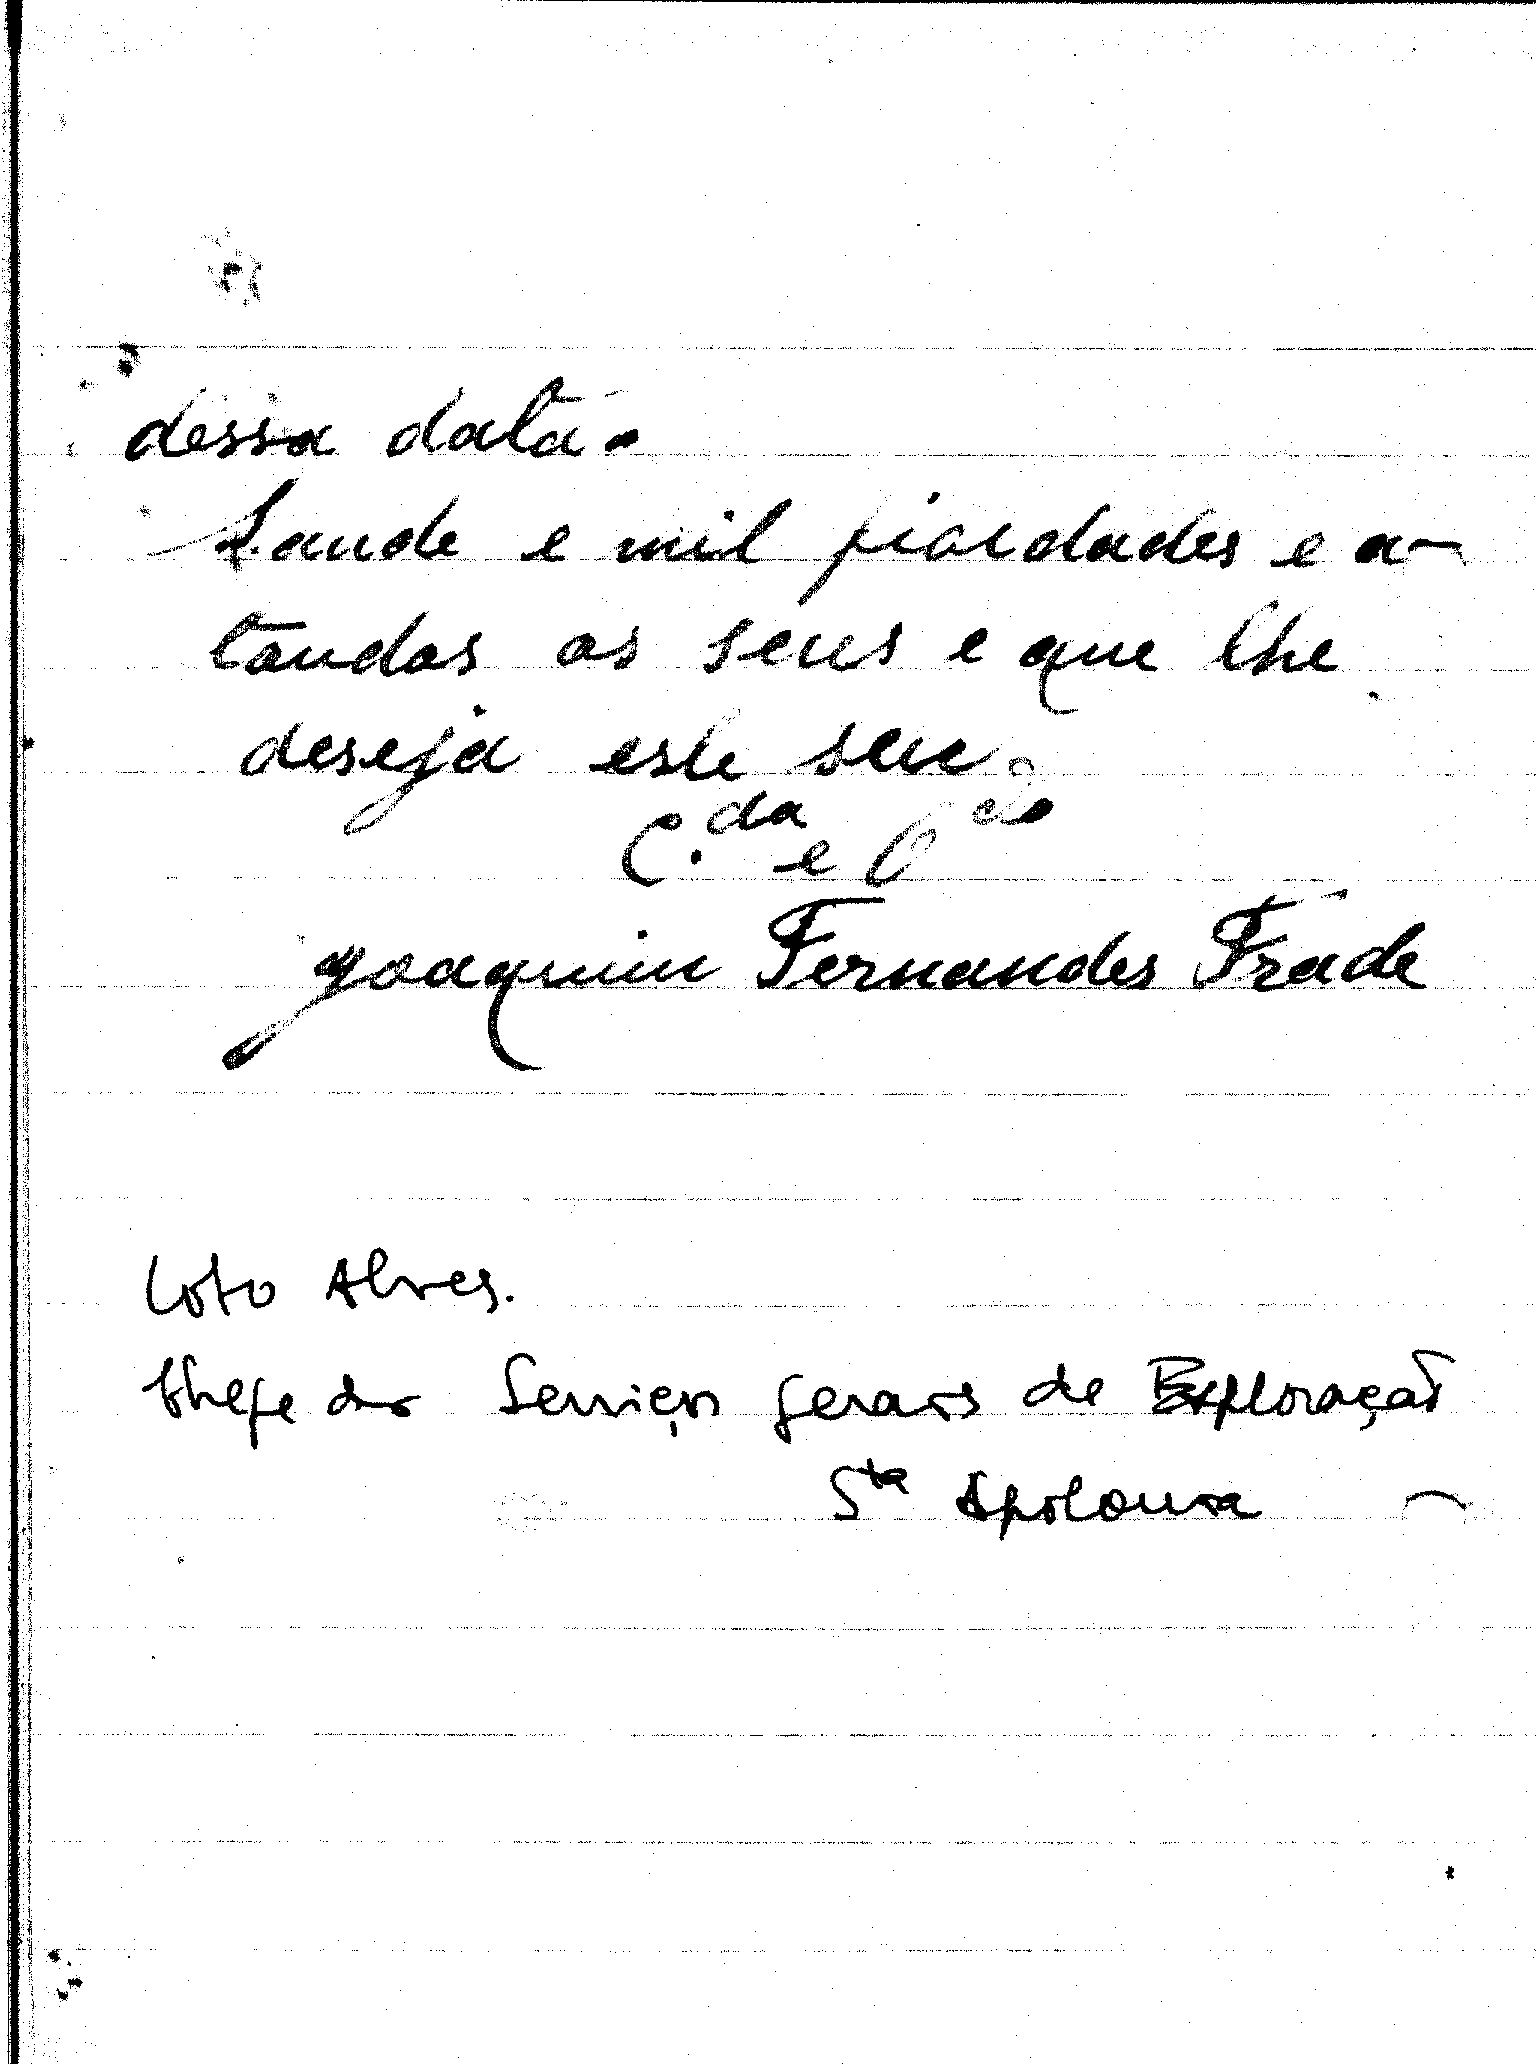 dessa data.
Saude e mil piardades e a-
tandos os seus e que lhe
deseja este seu.
C.da e O
Joaquim Fernandes Frade
Lobo Alves.
Chefe dos Serviços gerais de Exploração
Sta Apolonia